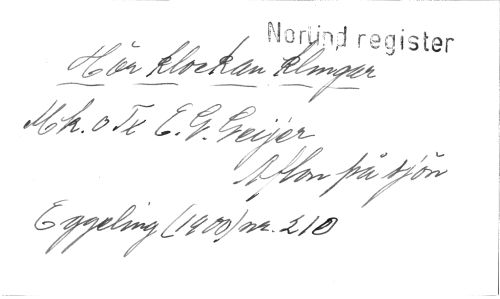 Norlind register
Hör klockan klingar
Mk. o Tx E. G. Geijer
Afton på sjön
Eggeling (1900) nr. 210